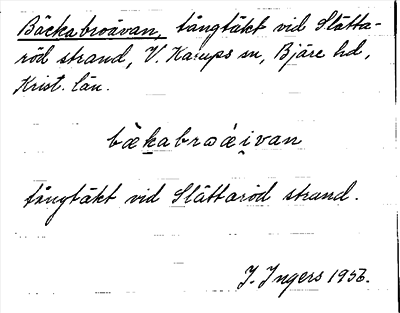 Bäckabroävan, tångtäkt vid Slätta-
röd strand, V. Karups sn, Bjäre hd,
Krist. län.
bæ̀kabrωǽi̯van
tångtäkt vid Slättaröd strand.
I. Ingers 1956.